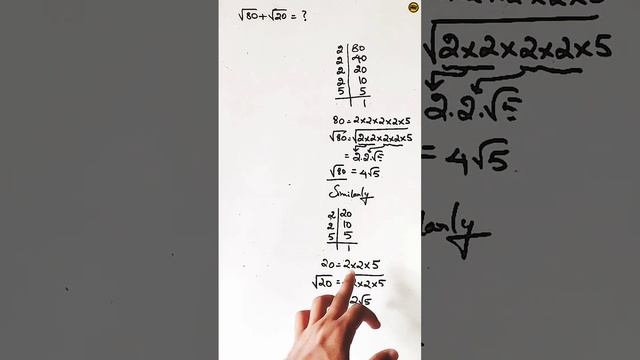 √80 + √20 = ?
2 | 80
2 | 40
2 | 20
2 | 10
5 | 5
1
80 = 2×2×2×2×5
√80 = √2×2×2×2×5
= 2.2.√5
√80 = 4√5
Similarly
2 | 20
2 | 10
5 | 5
1
20 = 2×2×5
√20 = √2×2×5
2√5